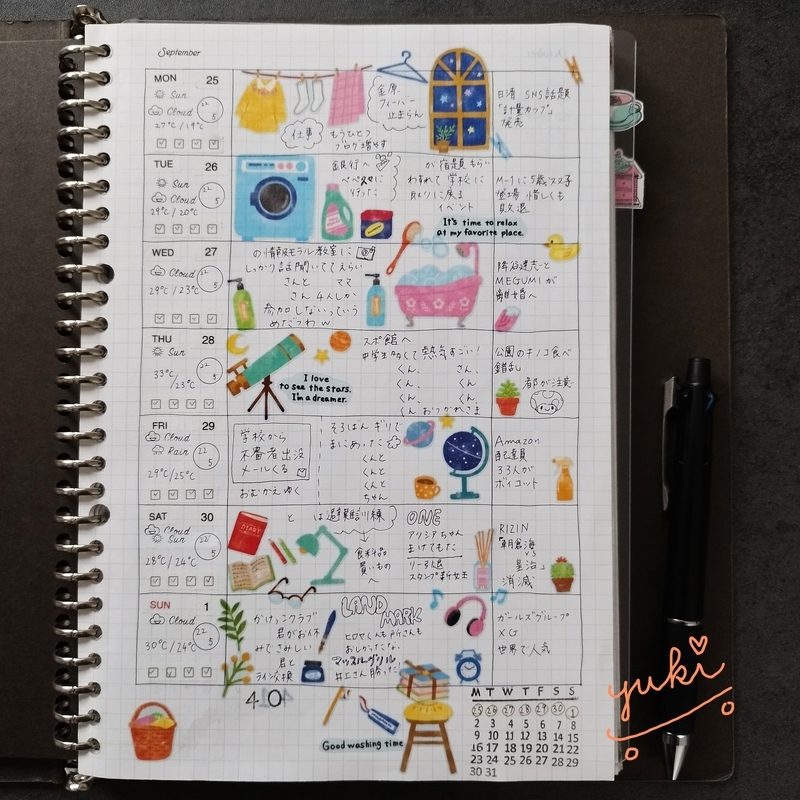 September
MON 25
Sun
Cloud
27℃/19℃
22
5
金原
フィーバー
止まらん
仕事
もうひとつ
ブログ増やす
日清 SNS話題
「計量カップ」
発売
TUE 26
Sun
Cloud
29℃/20℃
22
5
銀行へ
行った
が 宿題もらい
わすれて 学校に
取りに戻る
イベント
M-1に5歳
登場 惜しくも
敗退
It's time to relax
at my favorite place.
WED 27
Cloud
29℃/23℃
22
5
の情報モラル教室に
しっかり話聞いててえらい
さんと ママ
さん 4人しか
参加しないっていう
めだつわw
MEGUMIが
離婚へ
THU 28
Sun
33℃/23℃
22
5
スポ館へ
中学生多くて熱気すごい!
くん、 さん、
くん、 くん
くん、 くん
くん おつかれさま
I love
to see the stars.
I'm a dreamer.
公園のキノコ食べ
錯乱
都が注意
FRI 29
Cloud
Rain
29℃/25℃
22
5
学校から
不審者出没
メールくる
おむかえゆく
そろばん ギリで
まにあった
くんと
くんと
くんと
ちゃん
Amazon
配達員
33人が
ボイコット
SAT 30
Cloud
Sun
28℃/24℃
22
5
と は避難訓練
食料品
買いもの
へ
DIARY
ONE
アリシアちゃん
まけてもた
スタンプ新女王
RIZIN
「朝倉海
vs
消滅
SUN 1
Cloud
30℃/24℃
22
5
かけっこクラブ
君がお休
みでさみしい
君と
ライン交換
LAND
MARK
ヒロヤくんも所さんも
おしかったな
マッスルグリル
井上さん勝った
ガールズグループ
XG
世界で人気
40
Good washing time
M T W T F S S
25 26 27 28 29 30 1
2 3 4 5 6 7 8
9 10 11 12 13 14 15
16 17 18 19 20 21 22
23 24 25 26 27 28 29
30 31
yuki